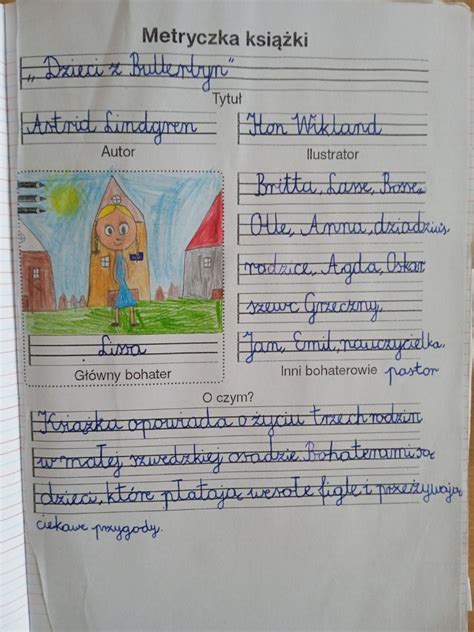 Metryczka książki
„Dzieci z Bullerbyn"
Tytuł
Astrid Lindgren
Autor
Ilon Wikland
Ilustrator
Lissa
Główny bohater
Britta, Lasse, Bosse,
Olle, Anna, dziadziuś
rodzice, Agda, Oskar
szewc Grzeczny,
Jan, Emil, nauczycielka,
pastor
Inni bohaterowie
O czym?
Książka opowiada o życiu trzech rodzin
w małej szwedzkiej osadzie. Bohaterami są
dzieci, które płatają wesołe figle i przeżywają
ciekawe przygody.